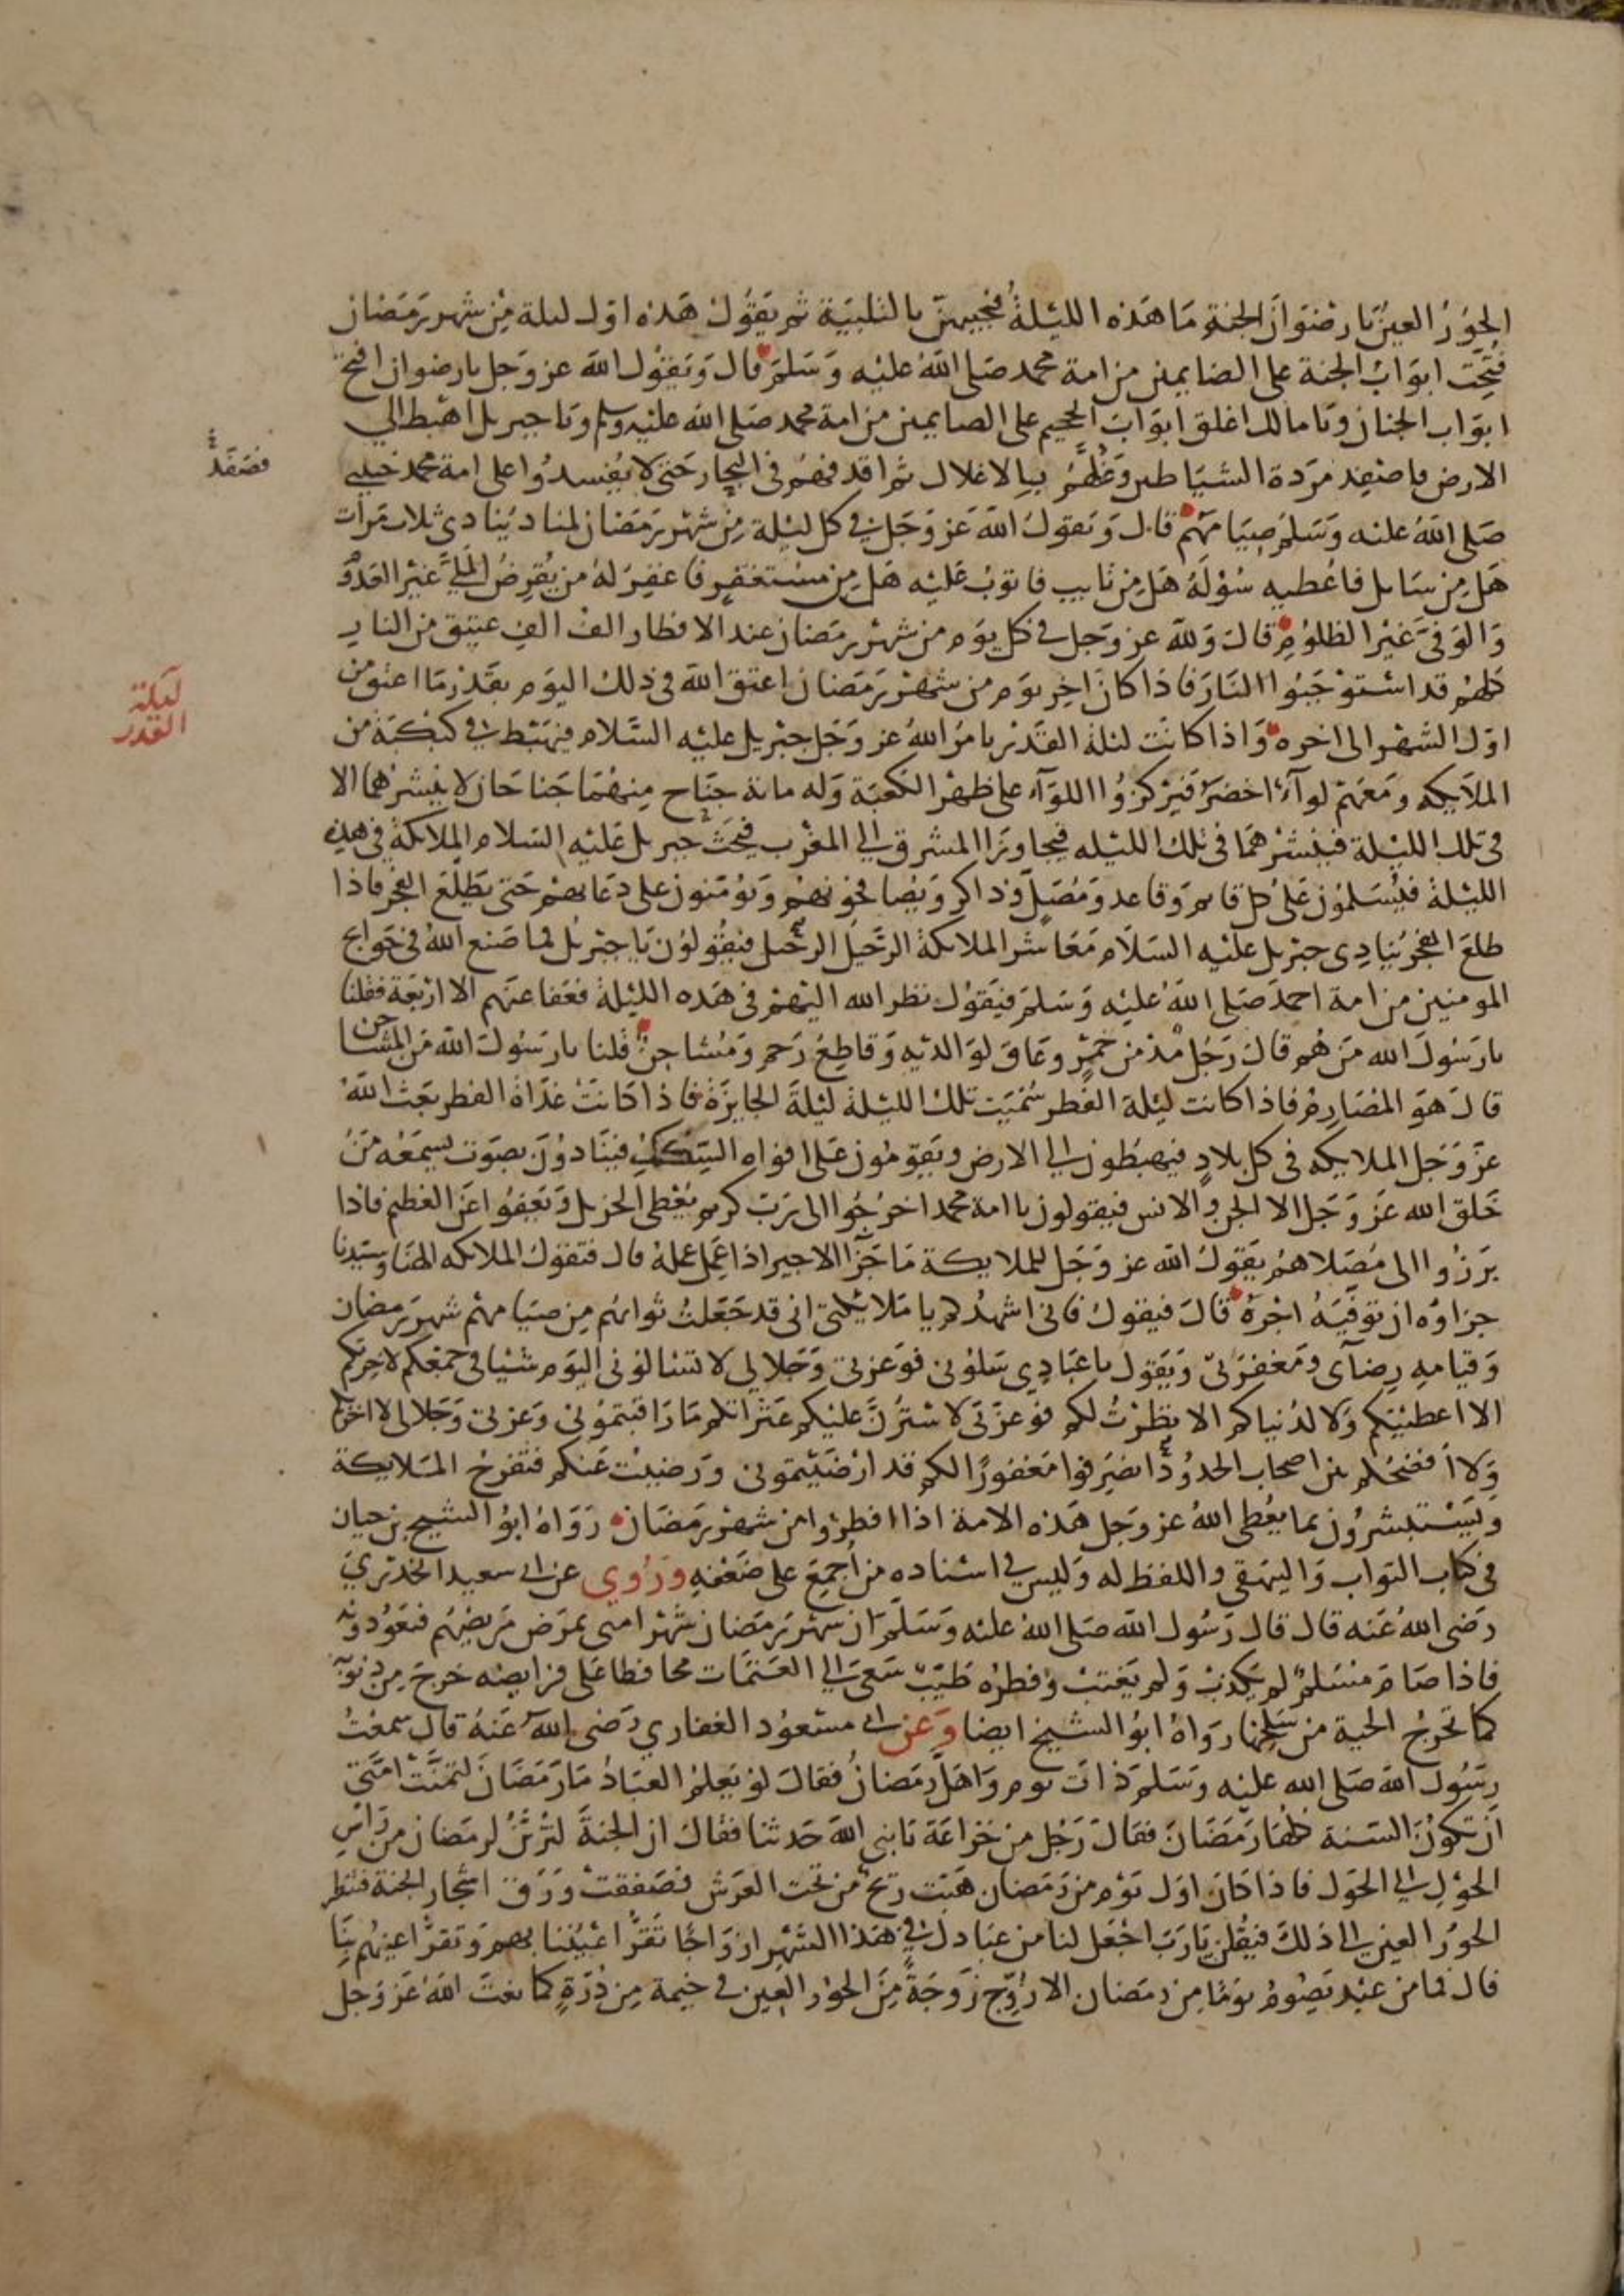 الحور العين يا رضوان الجنة ما هذه الليلة فيجيبهن بالتلبية ثم يقول هذه اول ليلة من شهر رمضان
فتحت ابواب الجنة على الصايمين من امة محمد صلى الله عليه وسلم قال ويقول الله عز وجل يا رضوان افتح
ابواب الجنان ويا مالك اغلق ابواب الجحيم على الصايمين من امة محمد صلى الله عليه وسلم ويا جبريل اهبط الى
الارض فاصفد مردة الشياطين وغلهم بالاغلال ثم اقذفهم في البحار حتى لا يفسدوا على امة محمد حبيبي
فصفد
صلى الله عليه وسلم صيامهم قال ويقول الله عز وجل في كل ليلة من شهر رمضان لمناد ينادي ثلاث مرات
هل من سايل فاعطيه سؤله هل من تايب فاتوب عليه هل من مستغفر فاغفر له من يقرض الملي غير العدوم
والوفي غير الظلوم قال ولله عز وجل في كل يوم من شهر رمضان عند الافطار الف الف عتيق من النار
كلهم قد استوجبوا النار فاذا كان اخر يوم من شهر رمضان اعتق الله في ذلك اليوم بقدر ما اعتق من
ليلة
القدر
اول الشهر الى اخره واذا كانت ليلة القدر يامر الله عز وجل جبريل عليه السلام فيهبط في كبكبة من
الملايكه ومعهم لواء اخضر فيركزوا اللواء على ظهر الكعبة وله ماية جناح منهما جناحان لا ينشرهما الا
في تلك الليلة فينشرهما في تلك الليله فيجاوزا المشرق الى المغرب فيحث جبريل عليه السلام الملايكة في هذه
الليلة فيسلمون على كل قايم وقاعد ومصل وذاكر ويصافحونهم ويؤمنون على دعايهم حتى يطلع الفجر فاذا
طلع الفجر ينادي جبريل عليه السلام معاشر الملايكة الرحيل الرحيل فيقولون يا جبريل فما صنع الله في حوايج
المومنين من امة احمد صلى الله عليه وسلم فيقول نظر الله اليهم في هذه الليلة فعفا عنهم الا اربعة فقلنا
يا رسول الله من هم قال رجل مدمن خمر وعاق لوالديه وقاطع رحم ومشاحن قلنا يا رسول الله من المشاحن
قال هو المصارم فاذا كانت ليلة الفطر سميت تلك الليلة ليلة الجايزة فاذا كانت غداة الفطر بعث الله
عز وجل الملايكه في كل بلاد فيهبطون الى الارض ويقومون على افواه السكك فينادون بصوت يسمعه من
خلق الله عز وجل الا الجن والانس فيقولون يا امة محمد اخرجوا الى رب كريم يعطي الجزيل ويعفوا عن العظيم فاذا
برزوا الى مصلاهم يقول الله عز وجل للملايكة ما جزا الاجير اذا عمل عمله قال فتقول الملايكه الهنا وسيدنا
جزاوه ان توفيه اجره قال فيقول فاني اشهدكم يا ملايكتي اني قد جعلت ثوابهم من صيامهم شهر رمضان
وقيامه رضاي ومغفرتي ويقول يا عبادي سلوني فوعزتي وجلالي لا تسالوني اليوم شيا في جمعكم لاخرتكم
الا اعطيتكم ولا لدنياكم الا نظرت لكم فوعزتي لاسترن عليكم عثراتكم ما راقبتموني وعزتي وجلالي لا اخزيكم
ولا افضحكم بين اصحاب الحدود انصرفوا مغفورا لكم قد ارضيتموني ورضيت عنكم فتفرح الملايكة
وتستبشرون بما يعطي الله عز وجل هذه الامة اذا افطروا من شهر رمضان رواه ابو الشيخ بن حيان
في كتاب الثواب والبيهقي واللفظ له وليس في اسناده من اجمع على ضعفه وروي عن ابي سعيد الخدري
رضي الله عنه قال قال رسول الله صلى الله عليه وسلم ان شهر رمضان شهر امتي يمرض مريضهم فيعودونه
فاذا صام مسلم لم يكذب ولم يغتب وفطره طيب سعى الى العتمات محافظا على فرايضه خرج من ذنوبه
كما تخرج الحية من سلخها رواه ابو الشيخ ايضا وعن ابي مسعود الغفاري رضي الله عنه قال سمعت
رسول الله صلى الله عليه وسلم ذات يوم واهل رمضان فقال لو يعلم العباد ما رمضان لتمنت امتي
ان تكون السنة كلها رمضان فقال رجل من خزاعة يا نبي الله حدثنا فقال ان الجنة لتزين لرمضان من راس
الحول الى الحول فاذا كان اول يوم من رمضان هبت ريح من تحت العرش فصفقت ورق اشجار الجنة فتنظر
الحور العين الى ذلك فيقلن يا رب اجعل لنا من عبادك في هذا الشهر ازواجا تقر اعيننا بهم وتقر اعينهم بنا
قال فما من عبد يصوم يوما من رمضان الا زوج زوجة من الحور العين في خيمة من درة كما نعت الله عز وجل